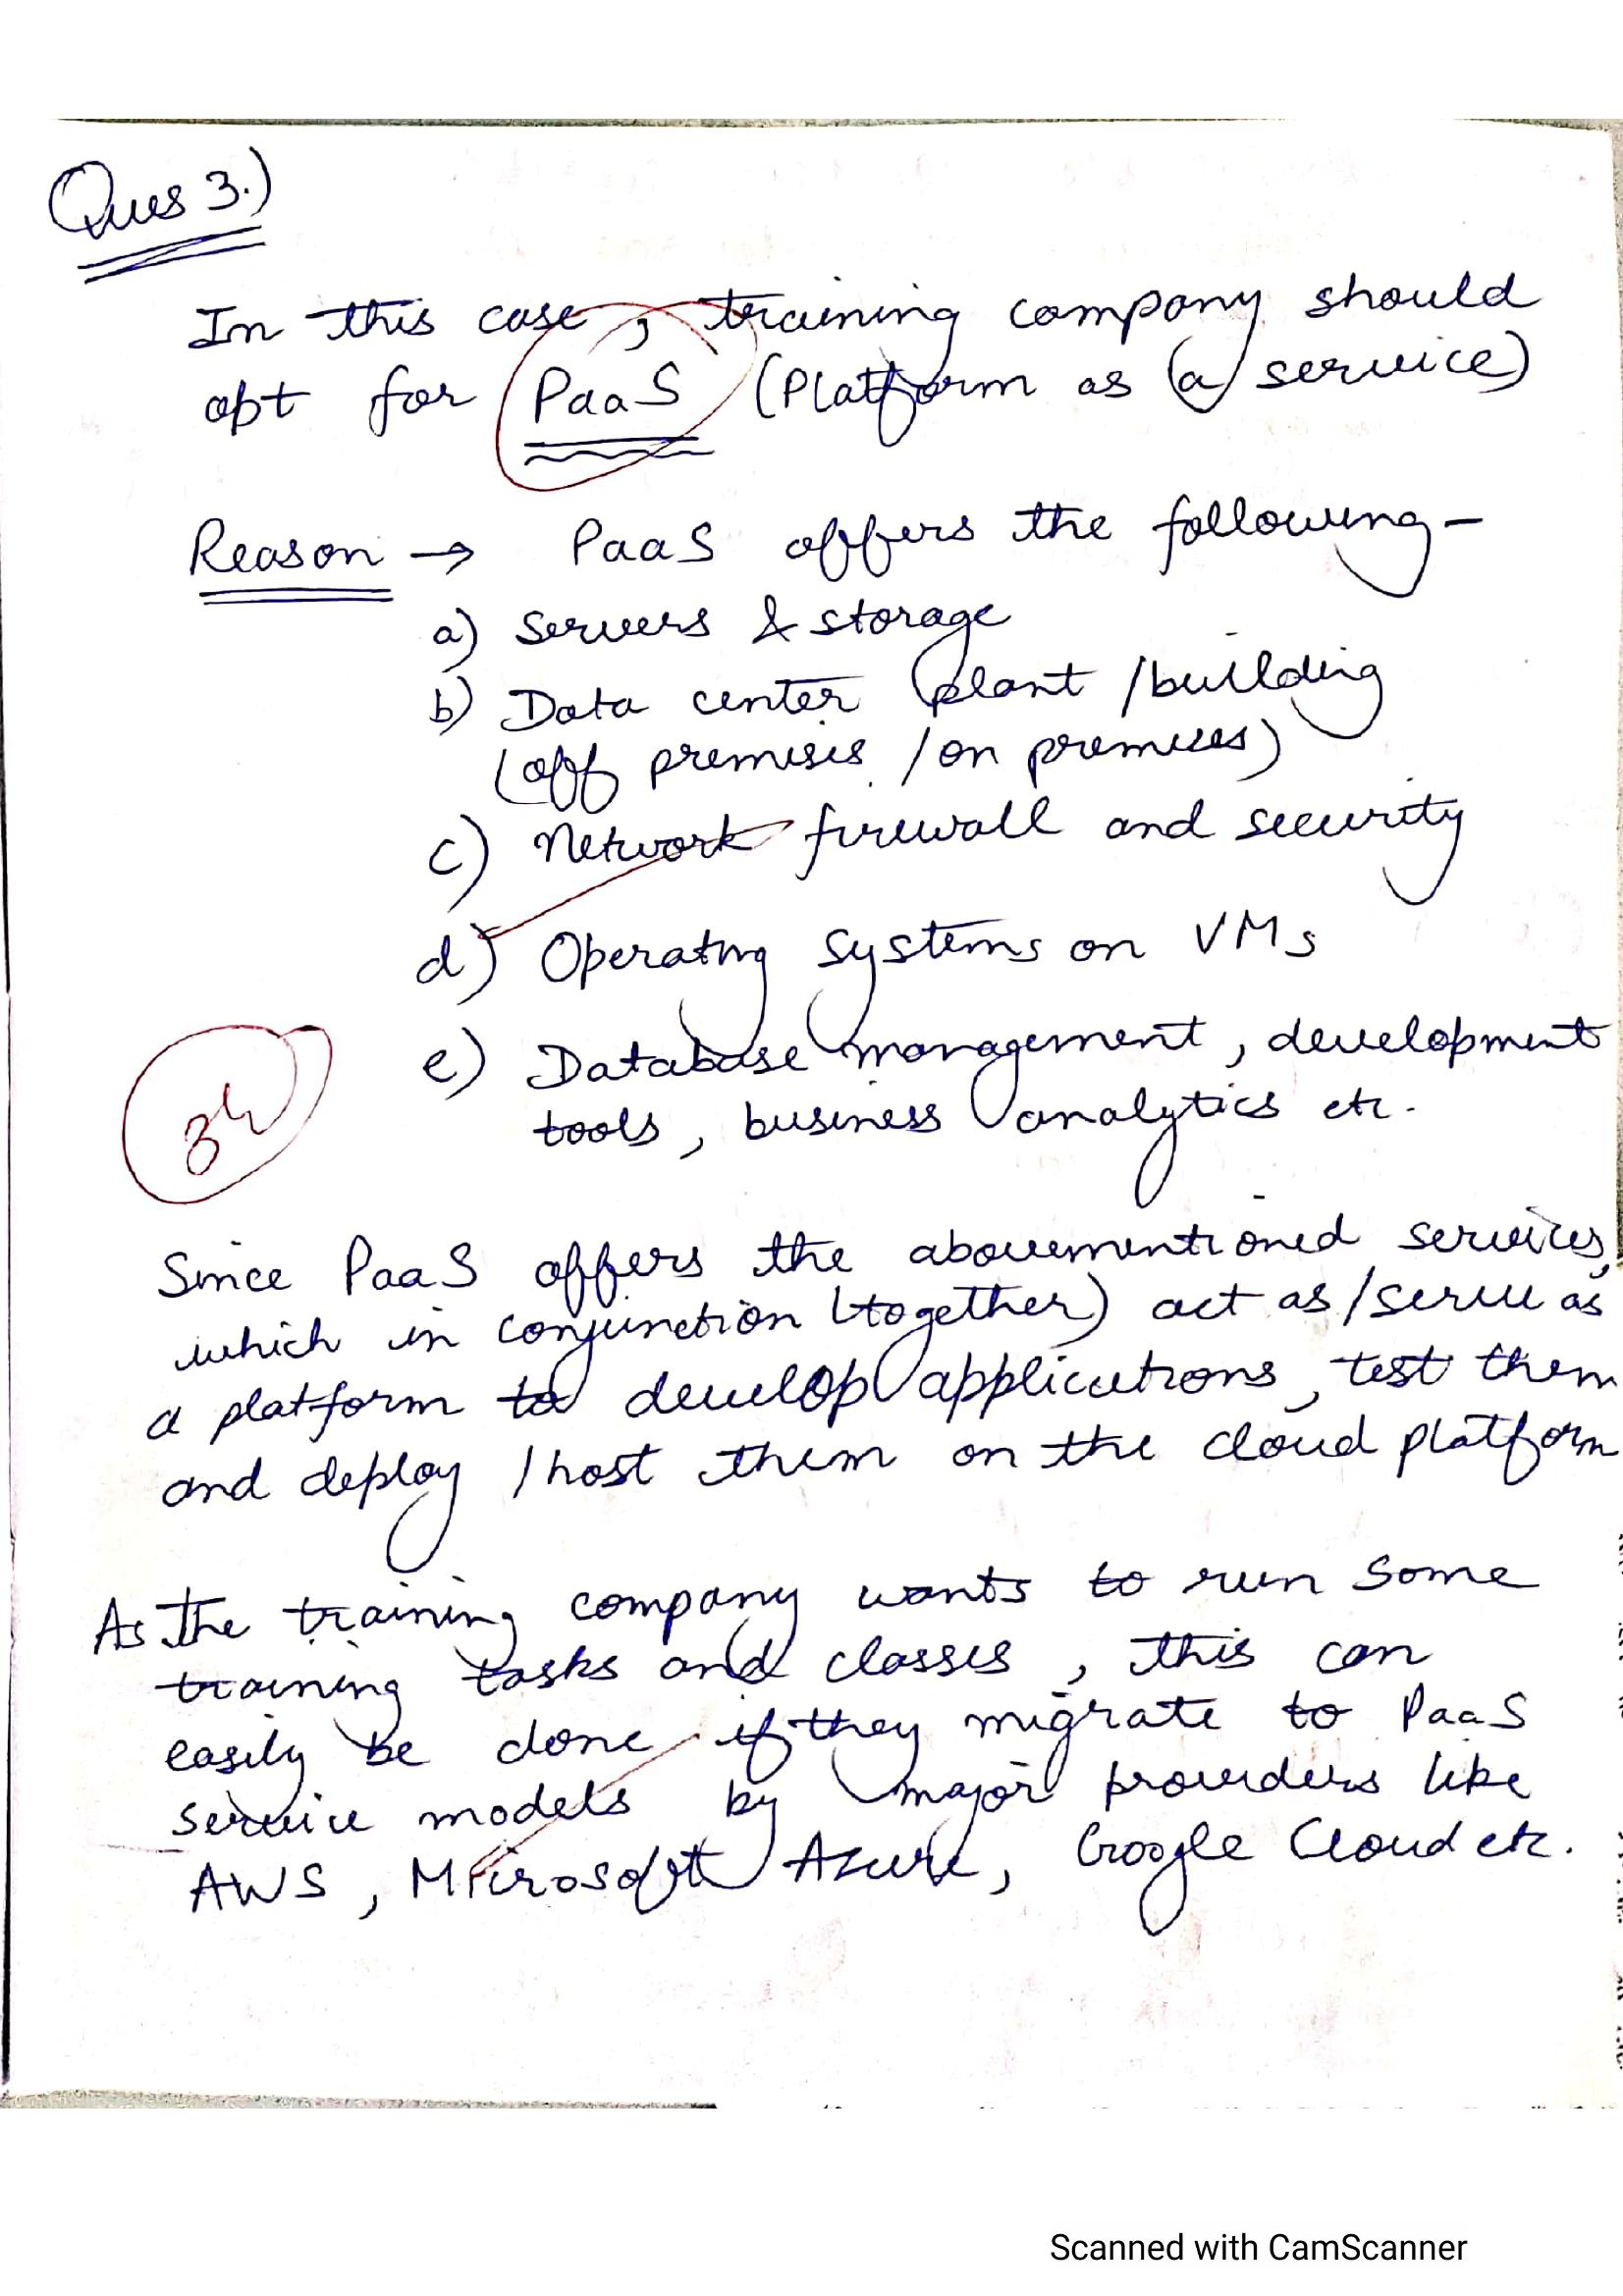 Ques 3.)
In this case, training company should
opt for PaaS (Platform as a service)
Reason → PaaS offers the following -
a) Servers & storage
b) Data center plant / building
(off premisis / on premises)
c) Network firewall and security
d) Operating systems on VMs
e) Database management, development
tools, business analytics etc.
Since PaaS offers the abovementioned services,
which in conjunction (together) act as / serve as
a platform to develop applications, test them
and deploy / host them on the cloud platform
As the training company wants to run some
training tasks and classes, this can
easily be done if they migrate to PaaS
service models by major providers like
AWS, Microsoft Azure, Google Cloud etc.
Scanned with CamScanner